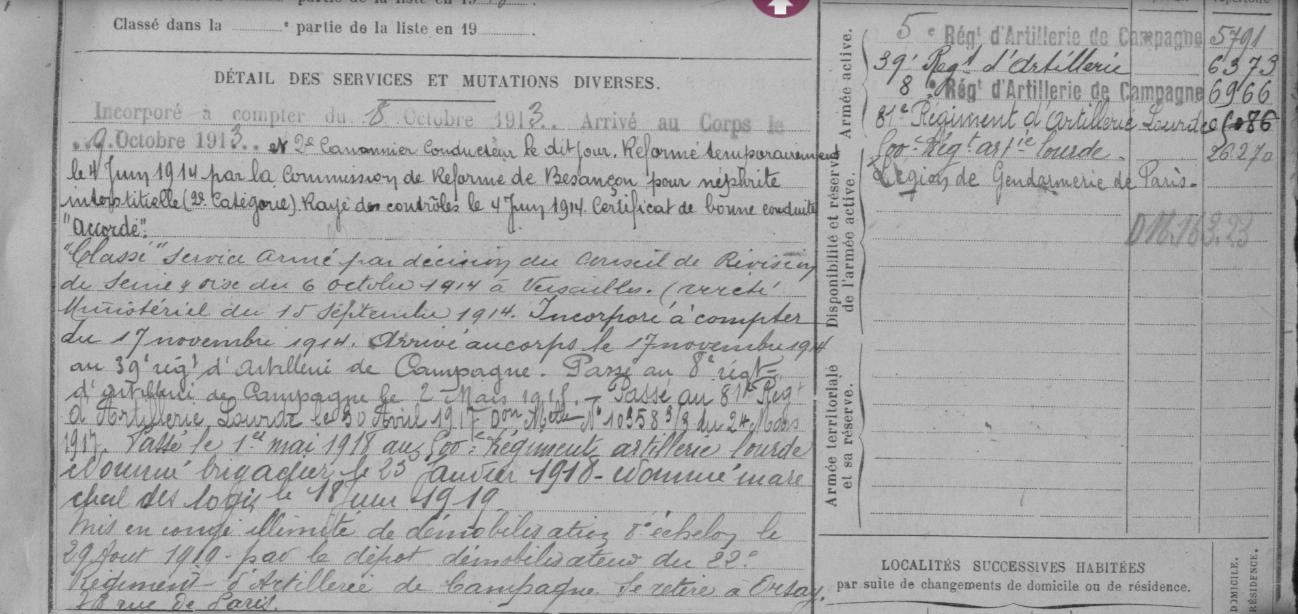 Classé dans la e partie de la liste en 19
DÉTAIL DES SERVICES ET MUTATIONS DIVERSES.
Incorporé à compter du 8 Octobre 1913. Arrivé au Corps le
9 Octobre 1913. et 2e Canonnier Conducteur le dit jour. Réformé temporairement
le 4 Juin 1914 par la Commission de Réforme de Besançon pour néphrite
interstitielle (2e Catégorie). Rayé des contrôles le 4 Juin 1914. Certificat de bonne conduite
"Accordé".
"Classé" Service Armé par décision du Conseil de Révision
de Seine & Oise du 6 octobre 1914 à Versailles.
Ministériel du 15 Septembre 1914. Incorporé à compter
du 17 novembre 1914. Arrivé au corps le 17 novembre 1914
au 39e régt d'Artillerie de Campagne. Passé au 8e regt
d'artillerie de Campagne le 2 Mars 191 . - Passé au 81e Régt
d'Artillerie Lourde le 30 Avril 1917 Don Mlle No 10358 3/3 du 24 Mars
1917. Passé le 1er mai 1918 au Régiment artillerie lourde
Nommé brigadier le 25 Janvier 1918 - Nommé maré
chal des logis le 18 1919
Mis en congé illimité de démobilisation 8e échelon le
29 Aout 1919 - par le dépot démobilisateur du 22e
Régiment d'Artillerie de Campagne. Se retire à Orsay,
rue de Paris.
Armée active.
5e Régt d'Artillerie de Campagne 5791
39e Regt d'Artillerie 6373
8e Régt d'Artillerie de Campagne 6966
81e Régiment d'Artillerie Lourde
Régt artie lourde. 26.270
Disponibilité et réserve
de l'armée active.
Légion de Gendarmerie de Paris.
D16.163.23
Armée territoriale
et sa réserve.
LOCALITÉS SUCCESSIVES HABITÉES
par suite de changements de domicile ou de résidence.
DOMICILE.
RÉSIDENCE.